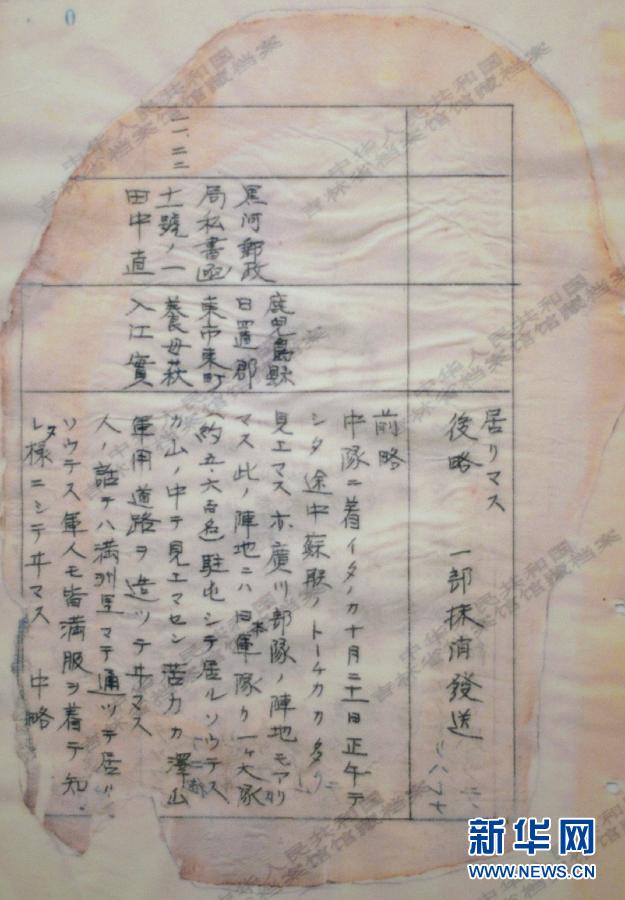 0
居リマス
後略 一部抹消發送
一、二二
黒河郵政
局私書函
十一號ノ一
田中直
鹿児島縣
日置郡
東市来町
養母萩
入江實
前略
中隊ニ着イタノカ十月二十一日正午テ
シタ途中蘇聯ノトーチカカ夕クサン
見エマス亦廣川部隊ノ陣地モアリ
マス此ノ陣地ニハ日本軍隊カ一ケ大隊
(約五六百名駐屯シテ居ルソウテス
カ山ノ中テ見エマセン苦力カ澤山
軍用道路ヲ造ツテヰマス
人ノ話テハ満洲里マテ通ツテ居ル
ソウテス軍人モ皆満服ヲ着テ知
レヌ様ニシテヰマス 中略
中华人民共和国
吉林省档案馆馆藏档案
新华网
WWW.NEWS.CN